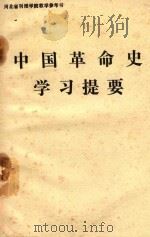 河北省刊授学院教学参考书
中国革命史
学习提要